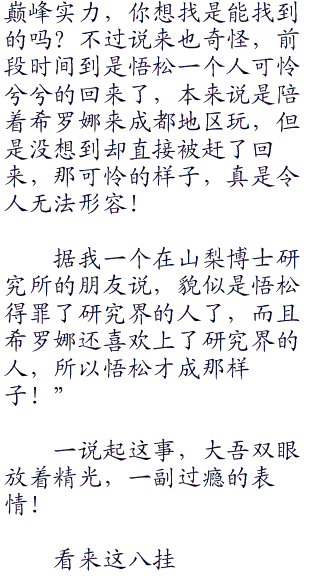 巅峰实力，你想找是能找到
的吗？不过说来也奇怪，前
段时间到是悟松一个人可怜
兮兮的回来了，本来说是陪
着希罗娜来成都地区玩，但
是没想到却直接被赶了回
来，那可怜的样子，真是令
人无法形容！
据我一个在山梨博士研
究所的朋友说，貌似是悟松
得罪了研究界的人了，而且
希罗娜还喜欢上了研究界的
人，所以悟松才成那样
子！”
一说起这事，大吾双眼
放着精光，一副过瘾的表
情！
看来这八挂